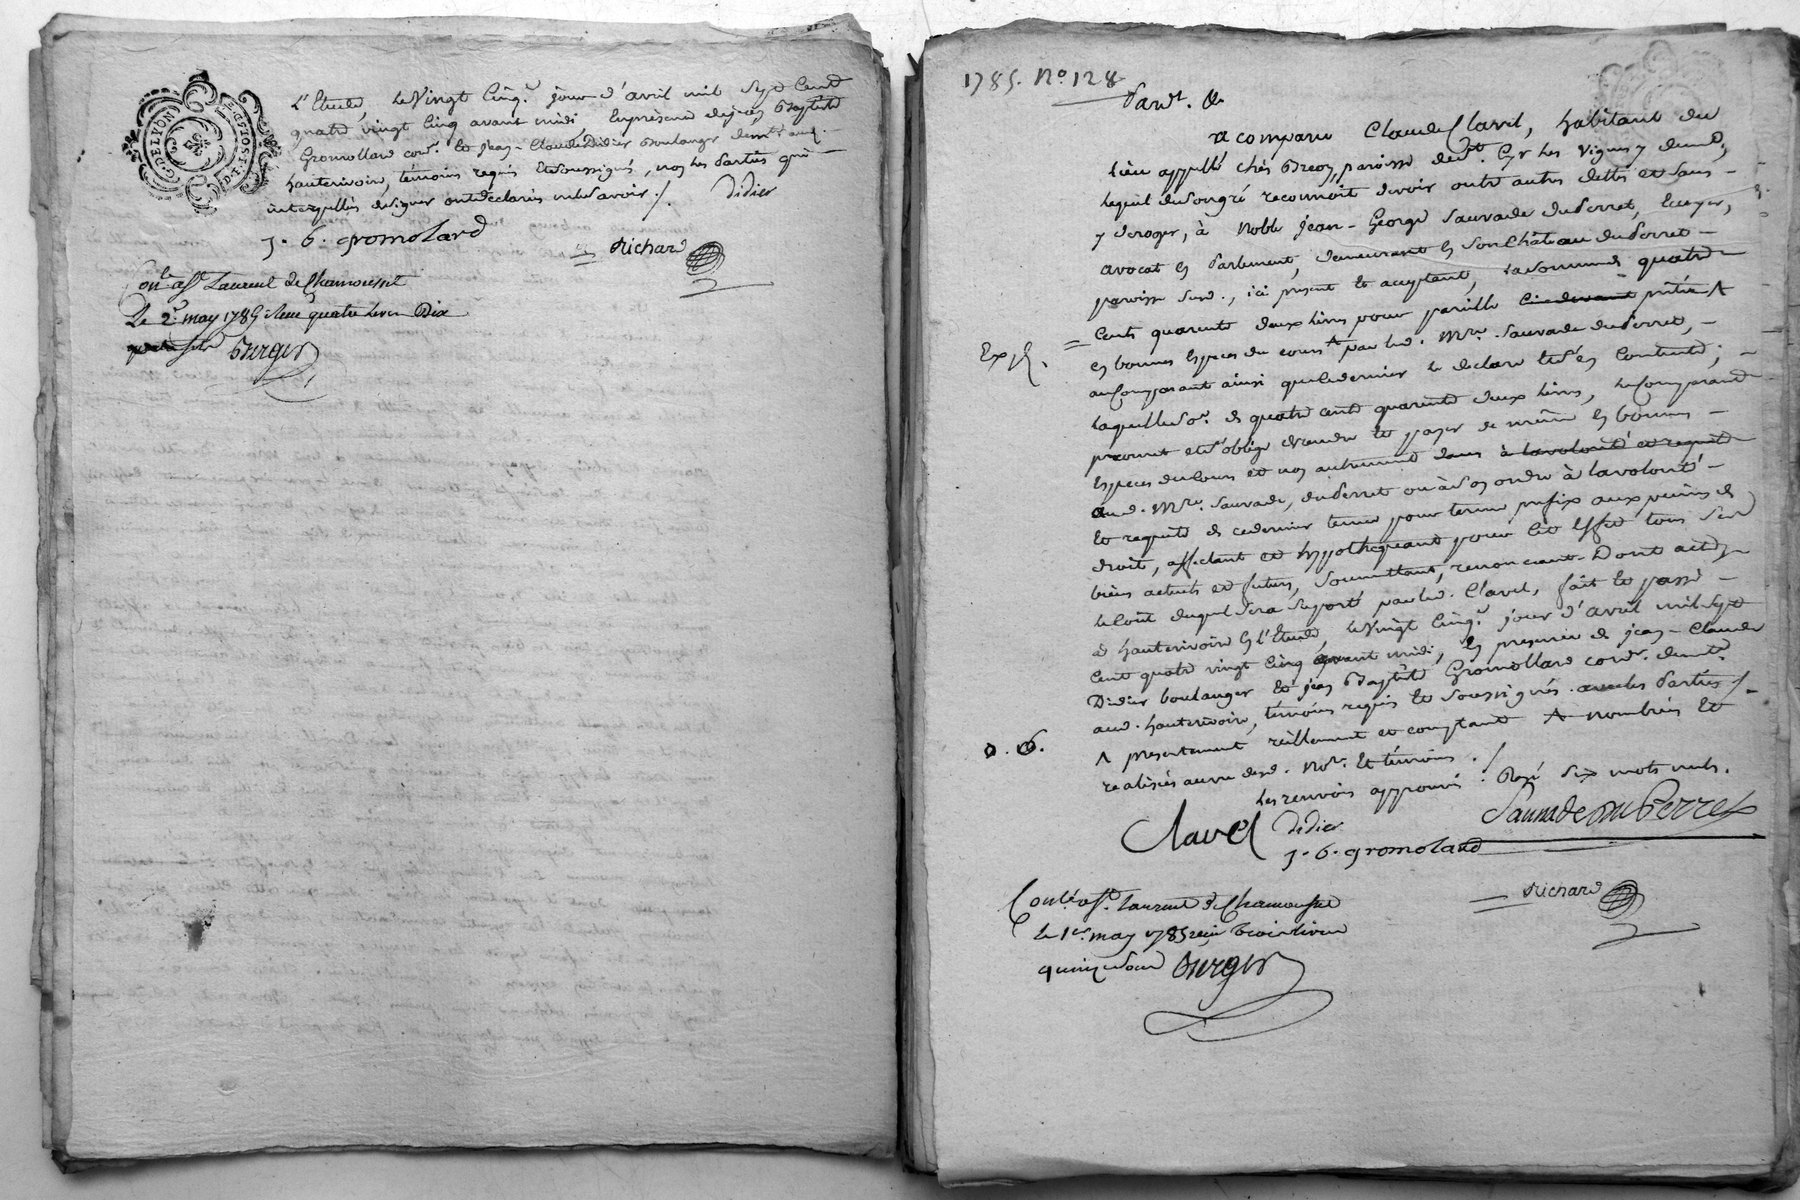 G. DE LYON 2. SOLS. D. P.
L'Etude, le Vingt Cinq.e jour d'avril mil Sept Cent
quatre vingt Cinq avant midi, En présence de jean Baptiste
Gromollard cord.r et jean-Claude Didier Boulanger dem.ts aud.
hauterivoire, temoins requis et soussignés, non les parties qui
interpellées de signer ont declarés ne le savoir ./. Didier
J. b. gromolard
Richard
Con.lé à S.t Laurent de Chamousset
Le 2.e may 1785 Receu quatre livres Dix
Burger
1785. N.o 128
Pard.t &
a comparu Claude Clavel, habitant du
lieu appellé chés Breon, paroisse de S.t Cyr les Vignes y dem.t,
lequel de son gré reconnoit devoir outre autres dettes et sans
y deroger, à Noble jean-George Sauvade Du Perret, Ecuyer,
avocat en Parlement, demeurant en son Château du Perret
paroisse sud., ici present et acceptant, la somme de quatre
Cent quarente deux livres pour pareille prétée
en bonnes Especes du cours par led. M.re Sauvade du Perret,
Exp.
au Comparant ainsi que ce dernier le declare et s'en Contente;
laquelle so.e de quatre cent quarente deux livres, le Comparant
promet et s'oblige de rendre et payer de même en bonnes
Especes du Cours et non autrement dans à la volonté et requete
aud. M.re Sauvade, du Perret ou à son ordre à la volonté
et requete de ce dernier tenue pour terme prefix aux peines de
droit, affectant et hypothequant pour cet Effet tous ses
biens actuels et futurs, soumettant, renonceant. Dont acte,
le Coût duquel sera suporté par led. Clavel, fait et passé
à hauterivoire en l'Etude, le Vingt Cinq.e jour d'avril mil Sept
Cent quatre vingt Cinq avant midi, En presence de jean-Claude
Didier boulanger et jean Baptiste Gromollard cord.r dem.ts
aud. hauterivoire, temoins requis et soussignés avec les parties ./.
presentement réellement et comptant nombrées et
realisées au vu desd. No.re et témoins ./.
Les renvois approuvés. Rayé six mots nuls.
Clavel Didier Sauvade Du Perret
J. b. gromolard
Richard
Con.lé à S.t Laurent de Chamousset
le 1.er may 1785 reçu trois livres
quinze sous Burger